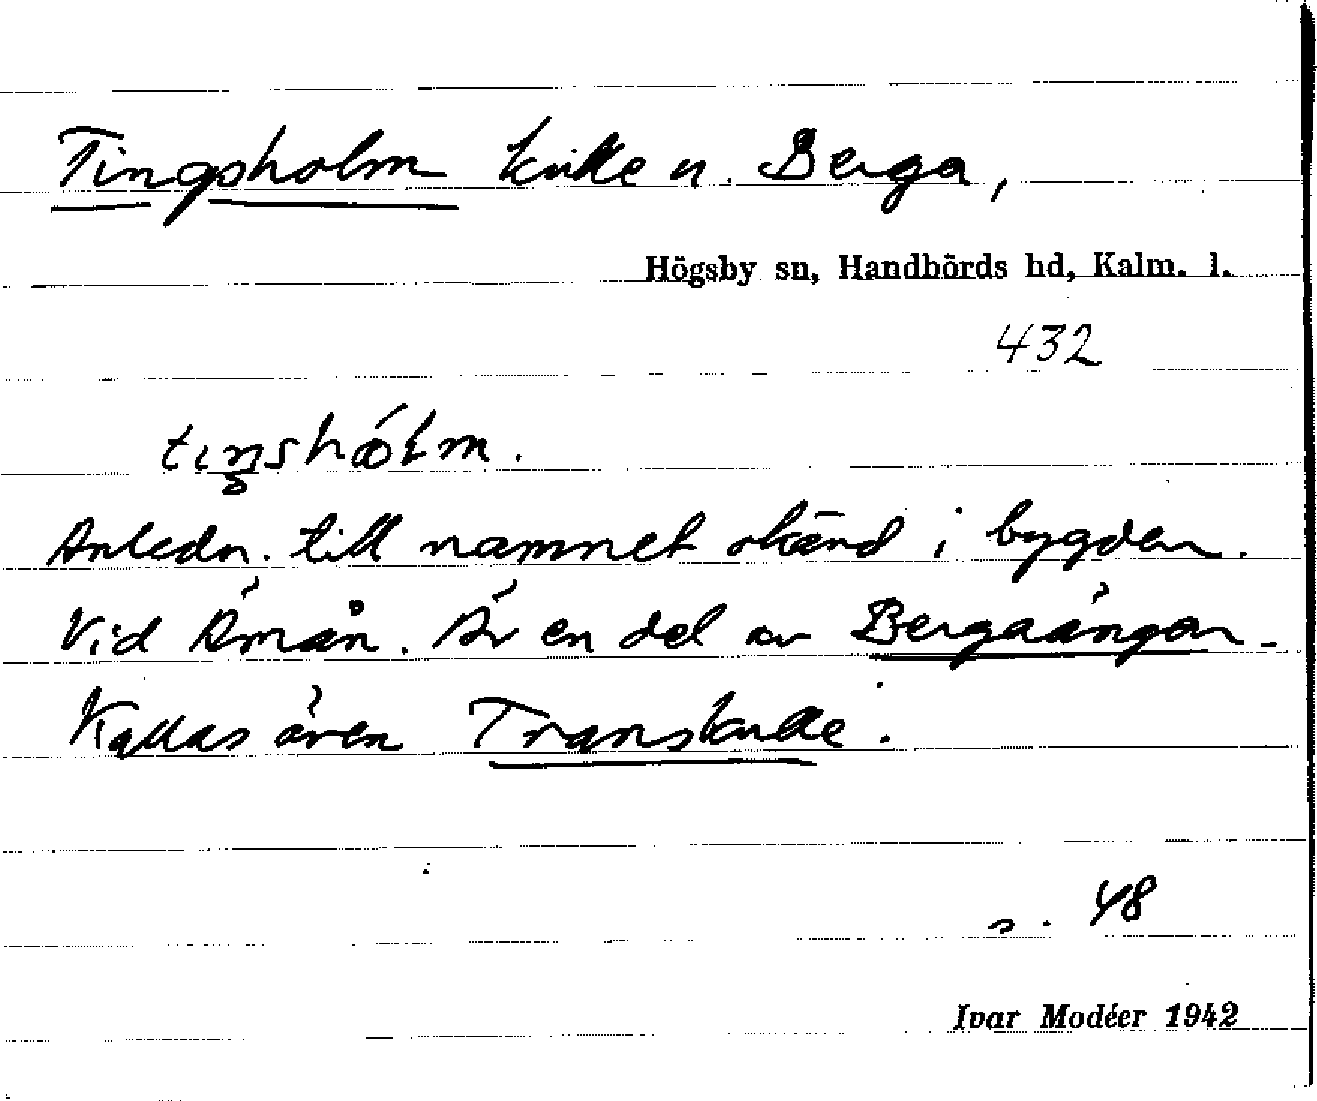 Tingsholm kulle n. Berga,
Högsby sn, Handbörds hd, Kalm. l.
432
tıŋshólm.
Anledn. till namnet okänd i bygden.
Vid Åmån. Är en del av Bergaängar.
Kallas även Transkulle.
s. 48
Ivar Modéer 1942